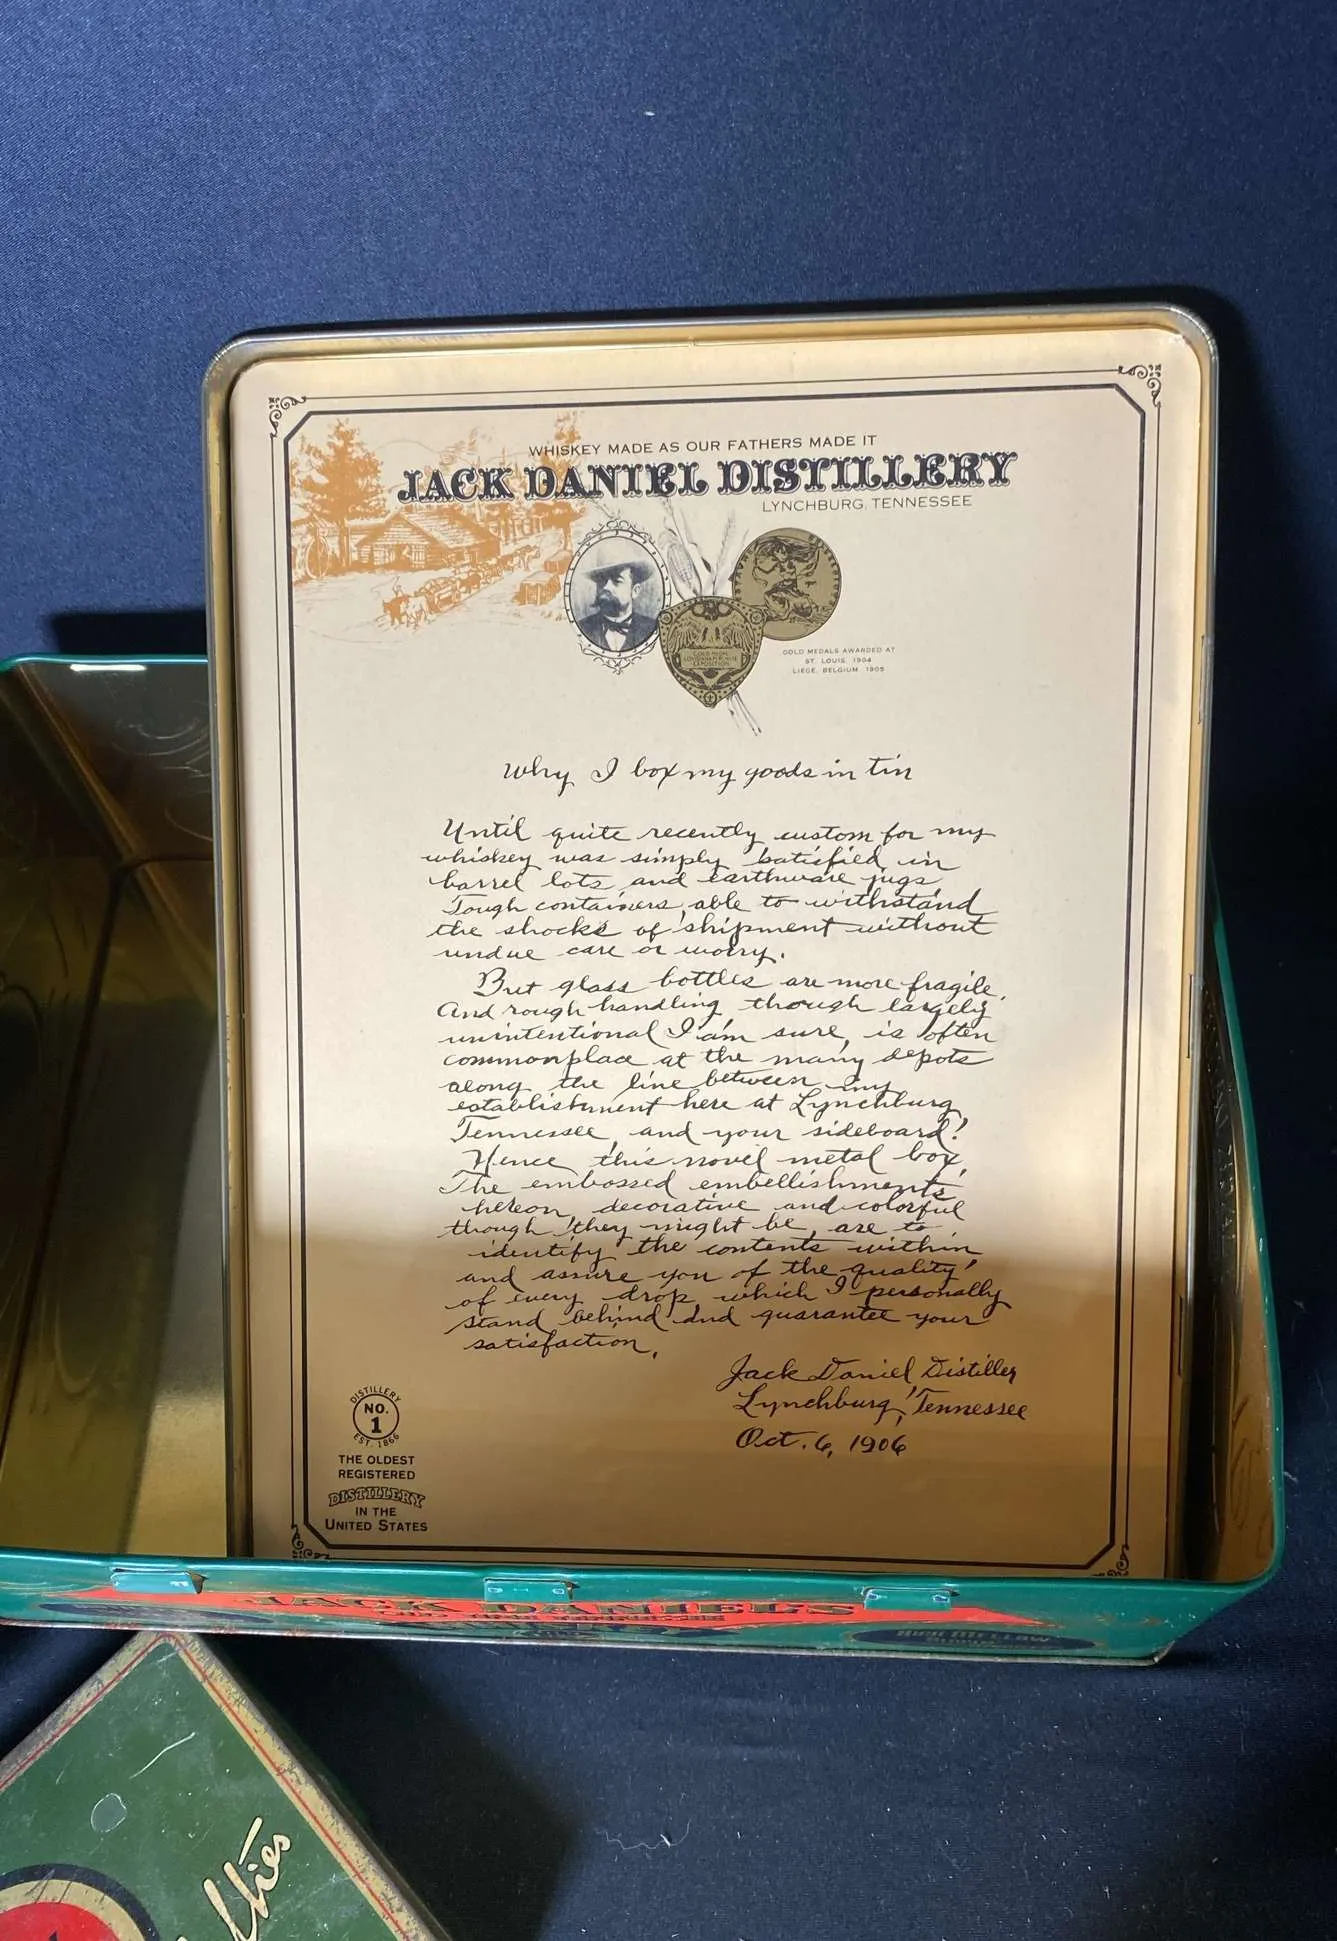 WHISKEY MADE AS OUR FATHERS MADE IT
JACK DANIEL DISTILLERY
LYNCHBURG, TENNESSEE
GOLD MEDALS AWARDED AT
ST. LOUIS, 1904
LIEGE, BELGIUM 1905
GOLD MEDAL
EXPOSITION
Why I box my goods in tin
Until quite recently custom for my
whiskey was simply satisfied in
barrel lots and earthware jugs
Tough containers able to withstand
the shocks of shipment without
undue care or worry.
But glass bottles are more fragile.
And rough handling though largely
unintentional I am sure, is often
commonplace at the many depots
along the line between my
establishment here at Lynchburg
Tennessee, and your sideboard!
Hence this novel metal box.
The embossed embellishments
hereon, decorative and colorful
though they might be, are to
identify the contents within
and assure you of the quality
of every drop which I personally
stand behind and guarantee your
satisfaction.
Jack Daniel Distiller
Lynchburg, Tennessee
Oct. 6, 1906
DISTILLERY
NO.
1
EST. 1866
THE OLDEST
REGISTERED
DISTILLERY
IN THE
UNITED STATES
JACK DANIEL'S